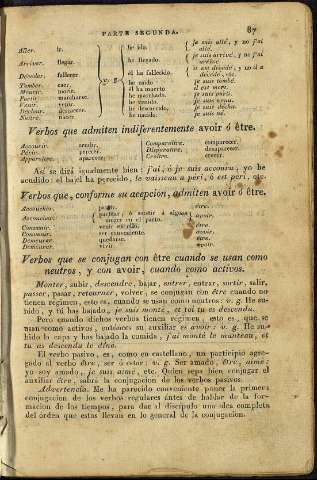 PARTE SEGUNDA. 87
Aller, ir. Je suis allé, y no j'ai allé.
Arriver, llegar. he llegado. je suis arrivé, y no j'ai arrivé.
Décéder, fallecer él ha fallecido. il est décédé, y no il a décédé, etc.
Tomber, caer. v. g. he caido je suis tombé.
Mourir, morir. él ha muerto il est mort.
Partir, marcharse. he marchado. je suis parti.
Venir, venir. he venido. je suis venu.
nacer. he nacido. je suis né.
Verbos que admiten indiferentemente avoir ó être.
Accourir, acudir. Comparaître, comparecer.
Périr, perecer. Disparaître, desaparecer.
Apparaître, aparecer. Croître, crecer.
Así se dirá igualmente bien: j'ai, ó je suis accouru, yo he
acudido: el bajel ha perecido, le vaisseau a péri, ó est péri, etc.
Verbos que, conforme su acepcion, admiten avoir ó être.
Accoucher, parir. être.
partear, ó asistir á alguna muger en el parto. avoir.
Convenir, avoir.
ser conveniente.
Demeurer, quedarse. être.
Demeurer, vivir avoir.
Verbos que se conjugan con être cuando se usan como
neutros, y con avoir, cuando como activos.
Monter, subir, descendre, bajar, entrer, entrar, sortir, salir,
passer, pasar, retourner, volver, se conjugan con être cuando no
tienen régimen, esto es, cuando se usan como neutros: v. g. He su-
bido, y tú has bajado, je suis monté, et toi tu es descendu.
Pero cuando dichos verbos tienen régimen, esto es, que se
usan como activos, entónces su auxiliar es avoir: v. g. He su-
bido la capa y has bajado la comida, j'ai monté le manteau, et
tu as descendu le dîné.
El verbo pasivo, es, como en castellano, un participio agre-
gado al verbo être, ser ó estar: v. g. Ser amado, être, aimé;
yo soy amado, je suis aimé, etc. Quien sepa bien conjugar el
auxiliar être, sabrá la conjugacion de los verbos pasivos.
Advertencia. Me ha parecido conveniente poner la primera
conjugacion de los verbos regulares ántes de hablar de la for-
macion de los tiempos, para dar al discípulo una idea completa
del órden que estas llevan en lo general de la conjugacion.